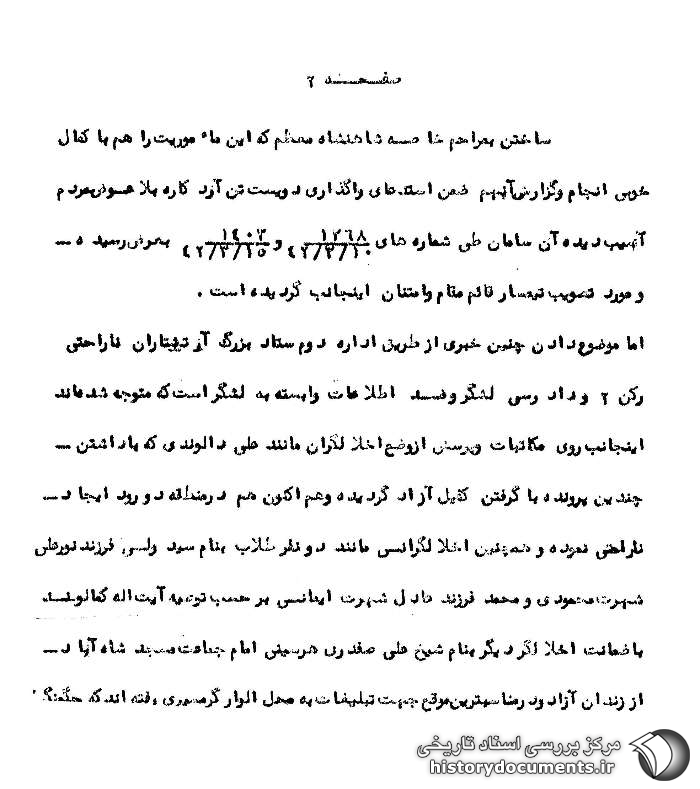 صفحه ۲
ساختن بمراحم خاصه شاهنشاه معظم که این مأموریت را هم با کمال
خوبی انجام وگزارش آنهم ضمن استدعای واگذاری دویست تن آرد کاره بلا عوض مردم
آسیب دیده آن سامان طی شماره های ۱۳۶۸ / ۴۲/۳/۱۰ و ۱۴۰۳ / ۴۲/۳/۱۵ بعرض رسیده ـ
و مورد تصویب تیمسار قائم مقام وامتنان اینجانب گردیده است .
اما موضوع دادن چنین خبری از طریق اداره دوم ستاد بزرگ ارتشتاران ناراحتی
رکن ۲ و دادرسی لشگر وضد اطلاعات وابسته به لشگر است که متوجه شده‌اند
اینجانب روی مکاتبات وپرسش ازوضع اخلالگران مانند علی دالوندی که با داشتن ـ
چندین پرونده با گرفتن کفیل آزاد گردیده وهم اکنون هم درمنطقه دورود ایجاد ـ
ناراحتی نموده و همچنین اخلالگرانی مانند دو نفر طلاب بنام سید ولی فرزند نورعلی
شهرت محمودی و محمد فرزند عادل شهرت ایمانی بر حسب توصیه آیت اله کمالوند
با ضمانت اخلالگر دیگر بنام شیخ علی صفدری هرسینی امام جماعت مسجد شاه آباد ـ
از زندان آزاد ودر مناسبترین موقع جهت تبلیغات به محل الوار گرمسیری رفته اند که
مرکز بررسی اسناد تاریخی
historydocuments.ir